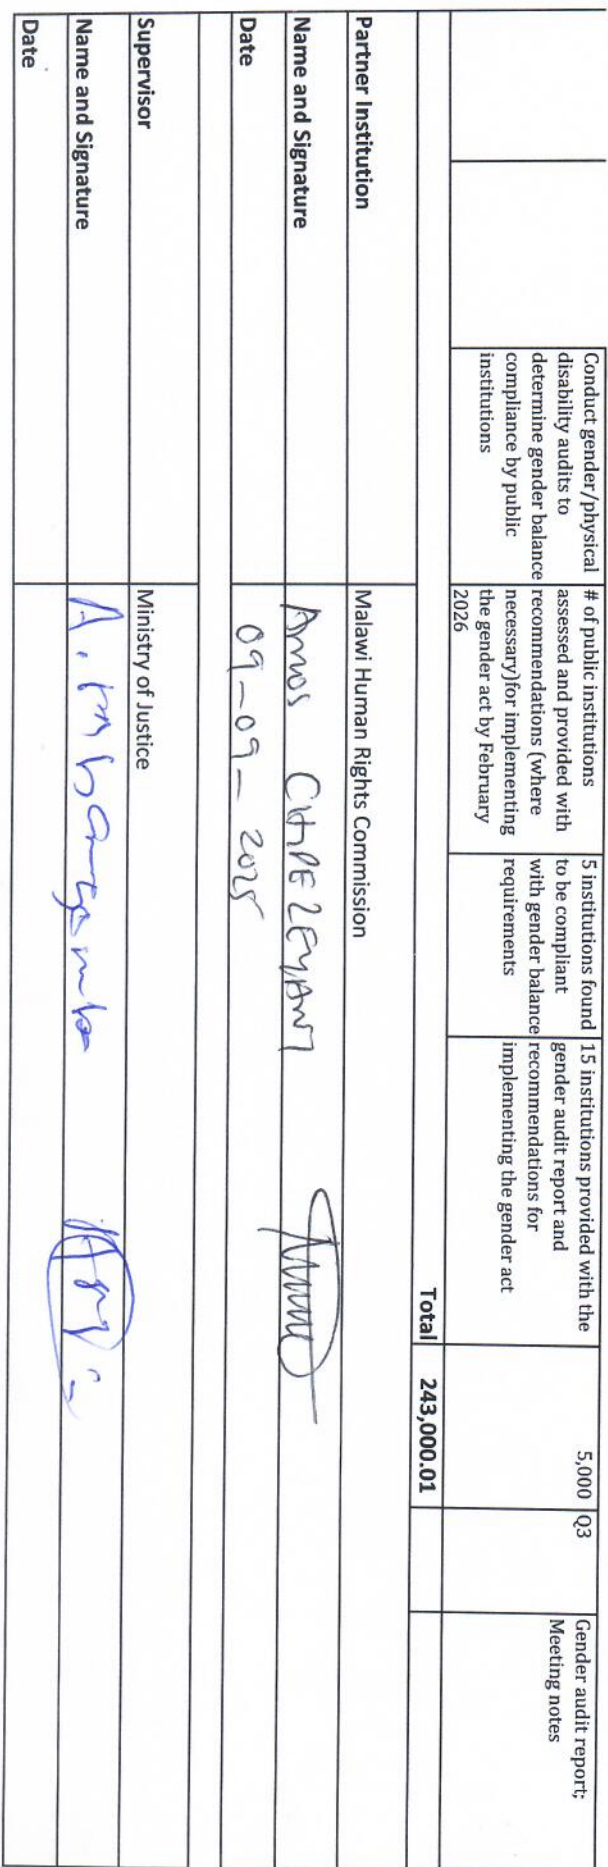 Conduct gender/physical
disability audits to
determine gender balance
compliance by public
institutions
# of public institutions
assessed and provided with
recommendations (where
necessary)for implementing
the gender act by February
2026
5 institutions found
to be compliant
with gender balance
requirements
15 institutions provided with the
gender audit report and
recommendations for
implementing the gender act
5,000
Q3
Gender audit report;
Meeting notes
Total 243,000.01
Partner Institution Malawi Human Rights Commission
Name and Signature Amos
Date 09-09-2025
Supervisor Ministry of Justice
Name and Signature A.
Date